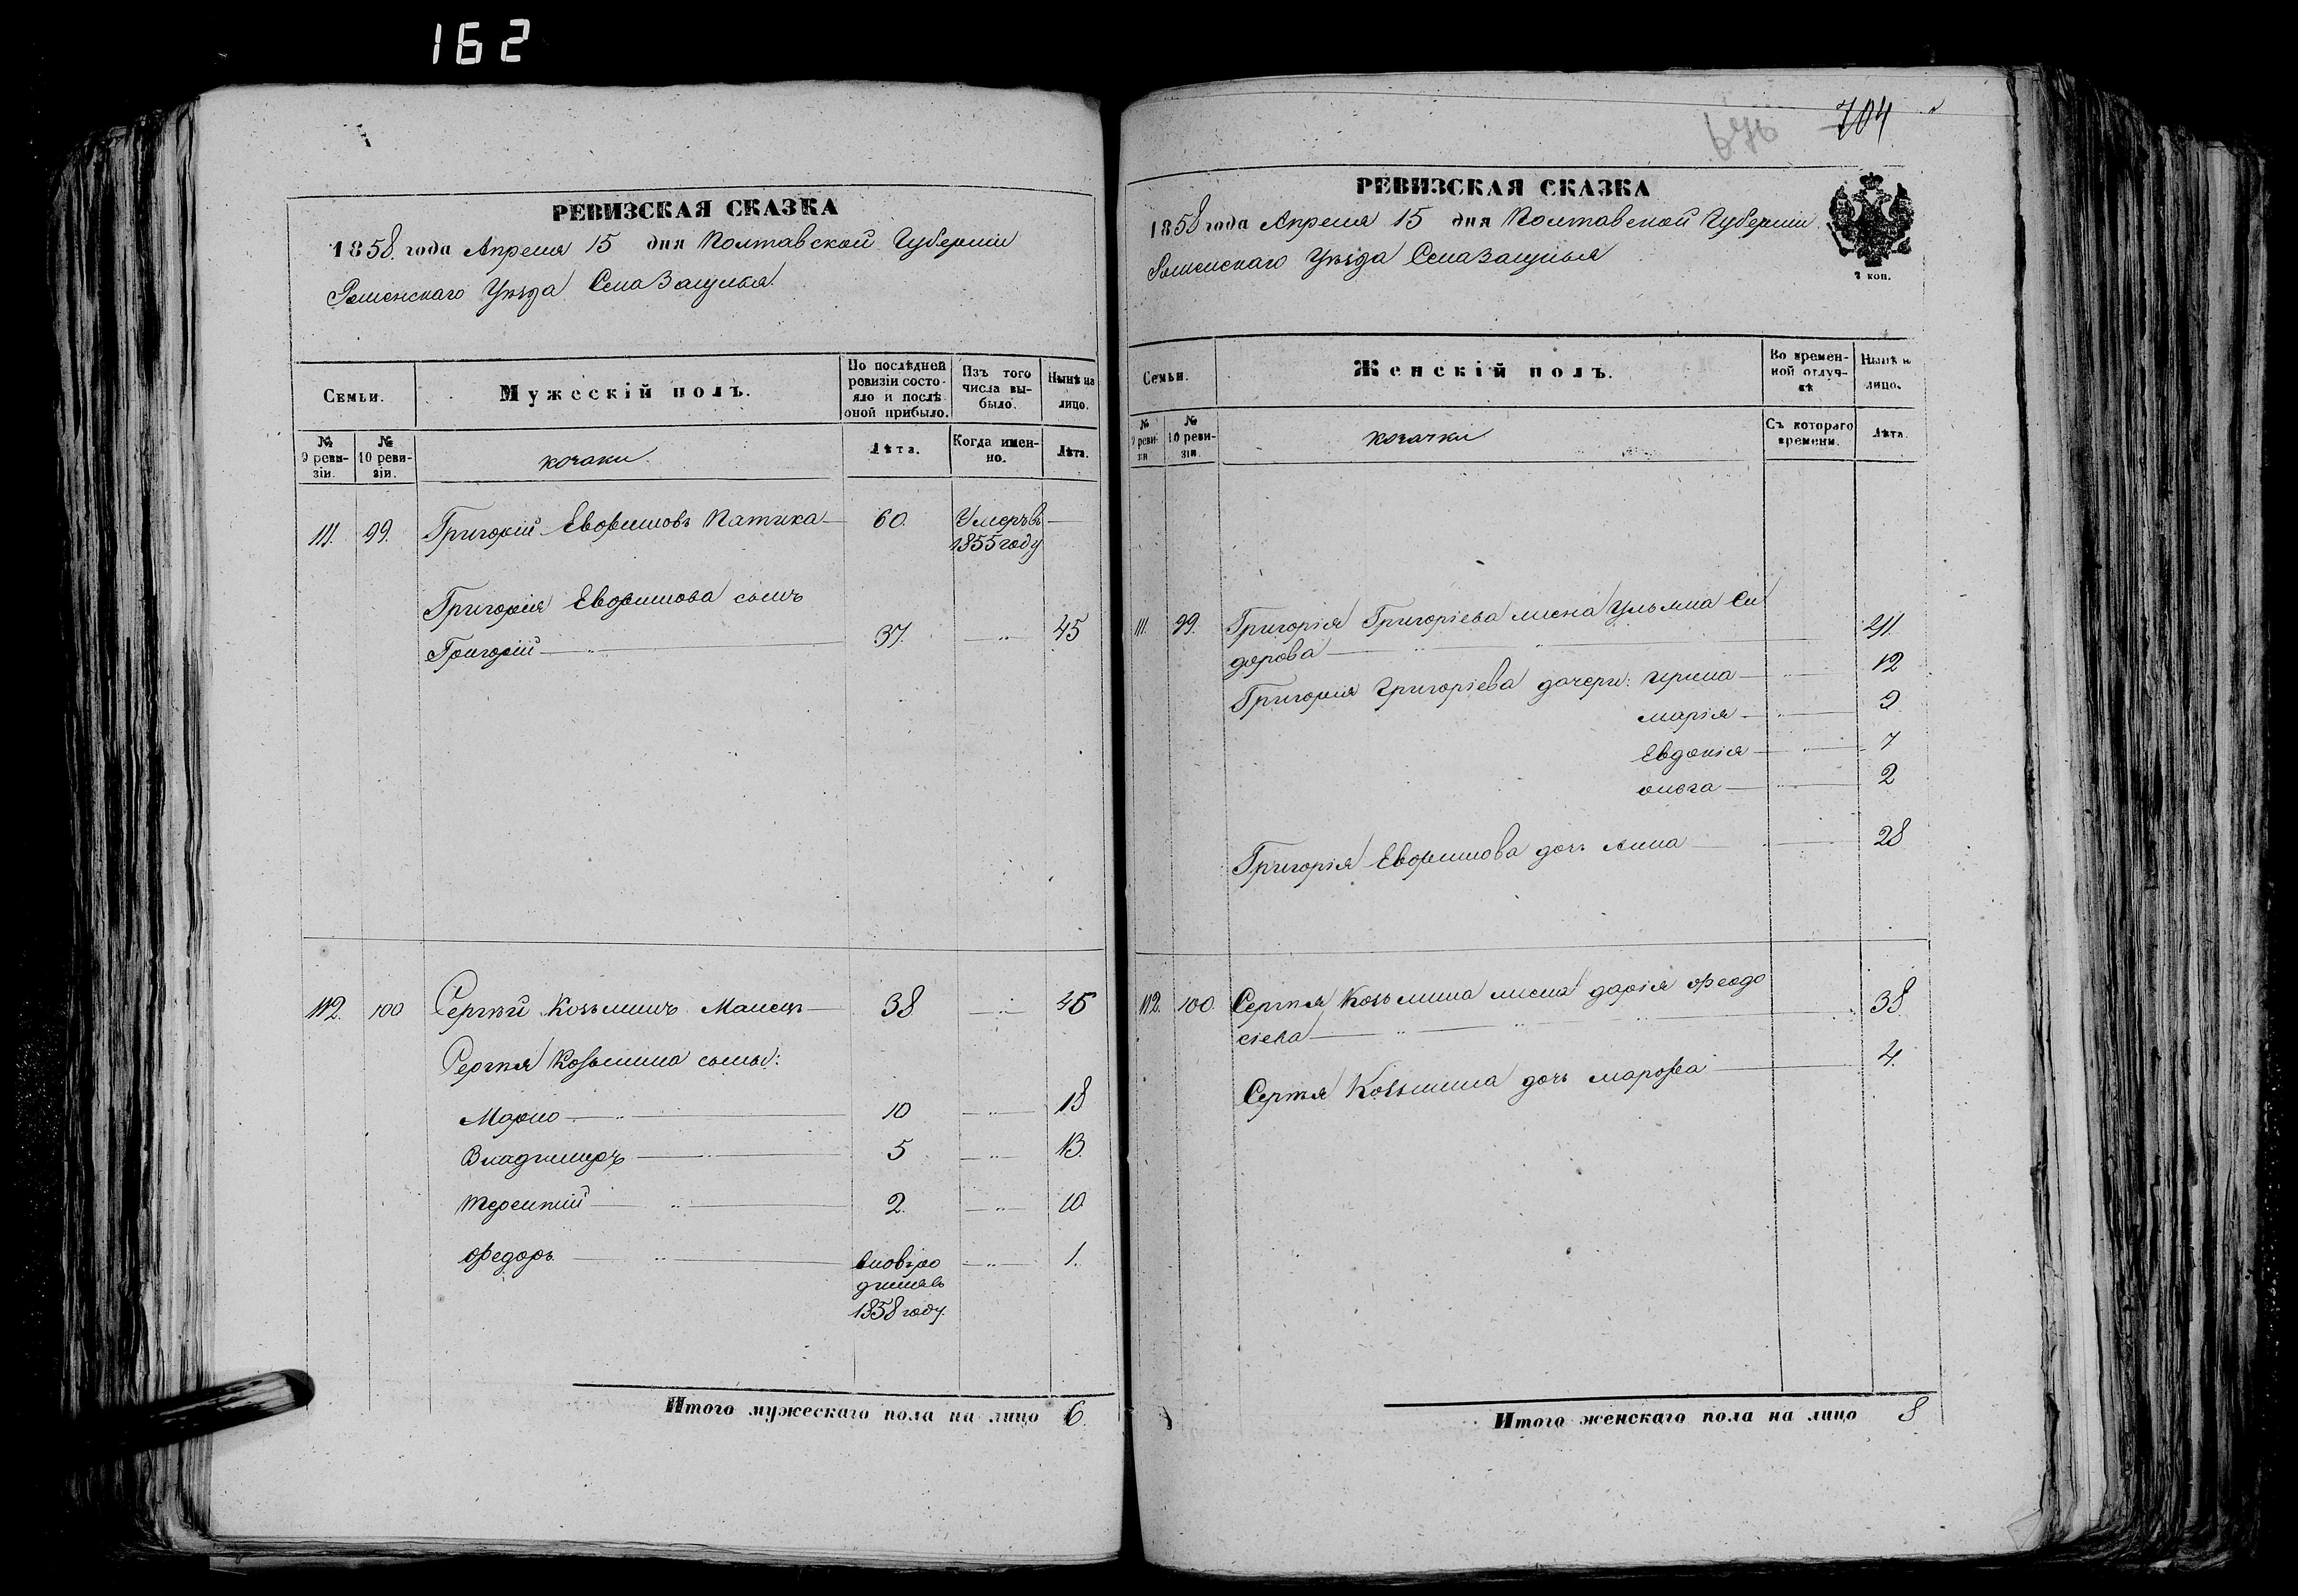 162
РЕВИЗСКАЯ СКАЗКА
1858 года Апреля 15 дня Полтавской Губерніи
Роменскаго Уѣзда Села
Семьи. Мужескій полъ. По послѣдней ревизіи состояло и послѣ оной прибыло. Изъ того числа выбыло. Нынѣ на лицо.
№ 9 ревизіи. № 10 ревизіи. козаки Лѣта. Когда именно. Лѣта.
111. 99. Григорій Евфимовъ 60. Умеръ въ
1855 году
Григорія Евфимова сынъ
Григорій 37. 45
112. 100 Сергѣй Козьминъ 38 45
Сергѣя Козьмина сыны:
Марко 10 18
Владимиръ 5 13.
Терентій 2. 10
Федоръ вновьро 1.
дился въ
1858 году.
Итого мужескаго пола на лицо 6.
704
РЕВИЗСКАЯ СКАЗКА
1858 года Апреля 15 дня Полтавской Губерніи
Роменскаго Уѣзда Села
2 коп.
Семьи. Женскій полъ. Во временной отлучкѣ Нынѣ н лицо.
№ 9 ревизіи № 10 ревизіи. козачки Съ котораго времени. Лѣта.
111. 99. Григорія Григоріева жена Ульяна Си
дорова
Григорія Григоріева дочери: Ирина 12
Марія 9
Евдокія 7
Ольга 2
Григорія Евфимова дочь Анна 28
112. 100. Сергѣя Козьмина жена Дарія Феодо 38.
сіева
Сергѣя Козьмина дочь Марфа 4.
Итого женскаго пола на лицо 8